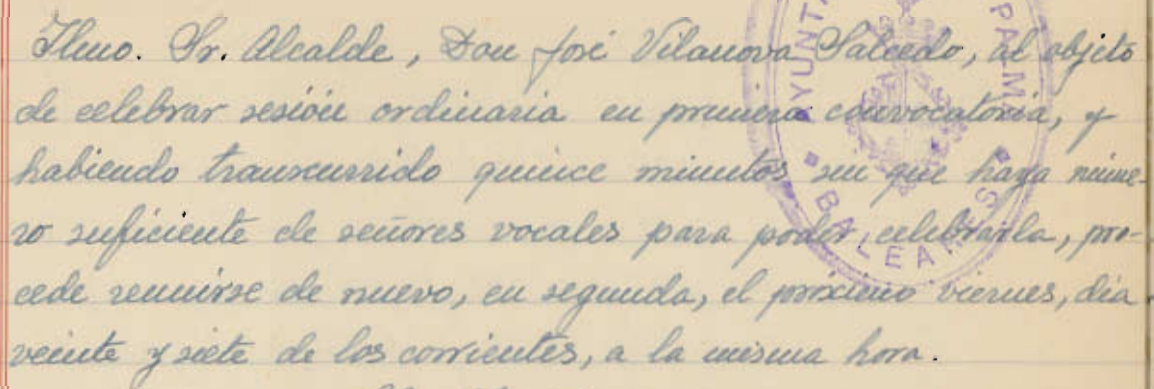 Ilmo. Sr. Alcalde, Don José Vilanova Salcedo, al objeto
de celebrar sesión ordinaria en primera convocatoria, y
habiendo transcurrido quince minutos sin que haya núme-
ro suficiente de señores vocales para poder celebrarla, pro-
cede reunirse de nuevo, en segunda, el próximo viernes, día
veinte y siete de los corrientes, a la misma hora.
AYUNTA PALM
BALEARES